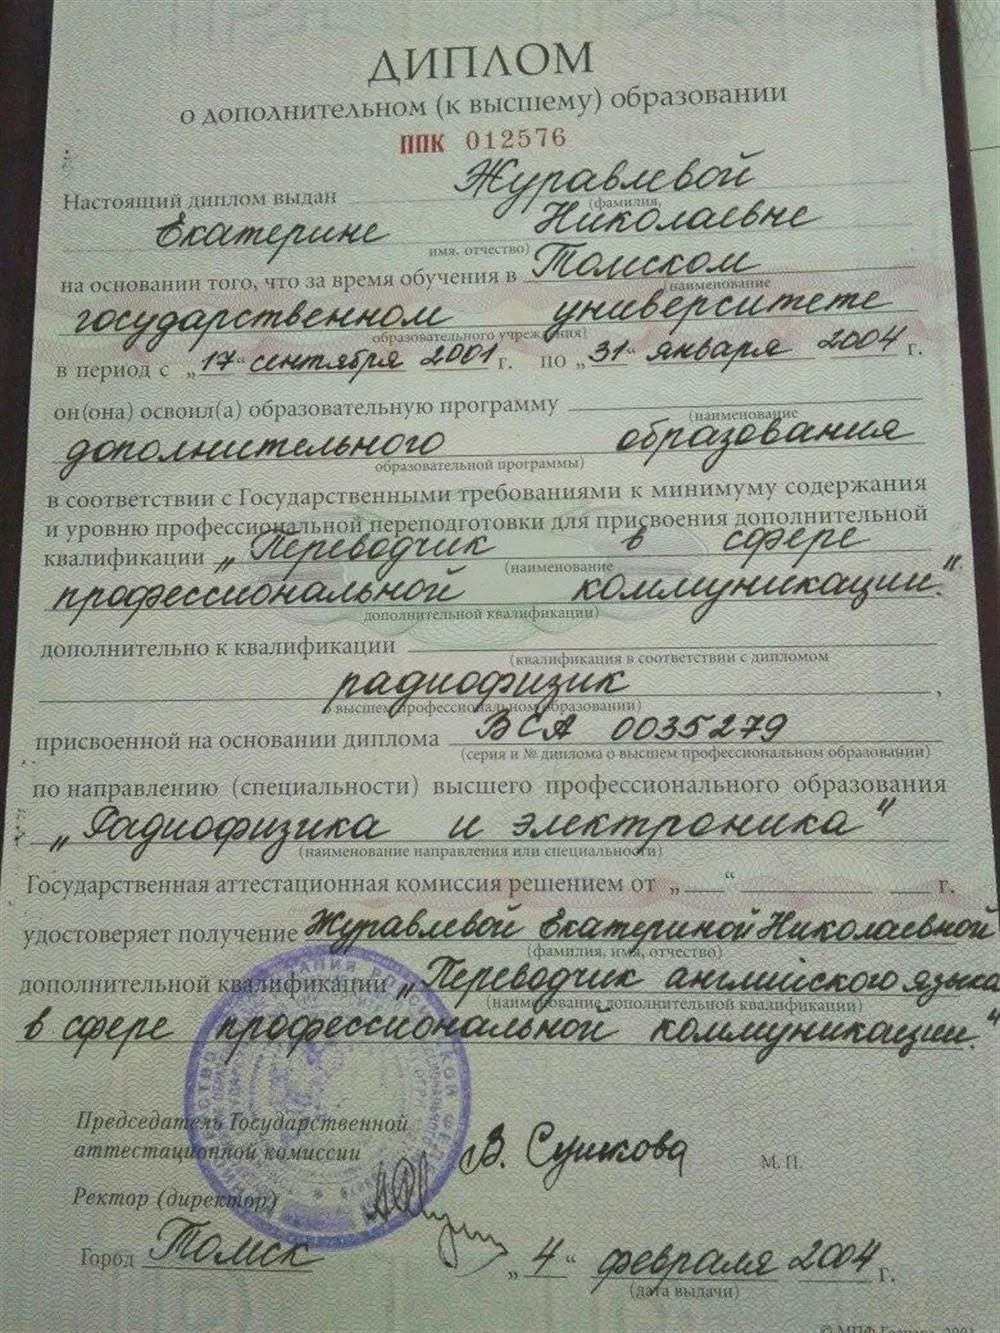 ДИПЛОМ
о дополнительном (к высшему) образовании
ППК 012576
Настоящий диплом выдан Журавлевой
(фамилия,
Екатерине Николаевне
имя, отчество)
на основании того, что за время обучения в Томском
(наименование
государственном университете
образовательного учреждения)
в период с „17“ сентября 2001 г. по „31“ января 2004 г.
он(она) освоил(а) образовательную программу
(наименование
дополнительного образования
образовательной программы)
в соответствии с Государственными требованиями к минимуму содержания
и уровню профессиональной переподготовки для присвоения дополнительной
квалификации „Переводчик в сфере
(наименование
профессиональной коммуникации“.
дополнительной квалификации)
дополнительно к квалификации
(квалификация в соответствии с дипломом
радиофизик,
о высшем профессиональном образовании)
присвоенной на основании диплома ВСА 0035279
(серия и № диплома о высшем профессиональном образовании)
по направлению (специальности) высшего профессионального образования
„Радиофизика и электроника“
(наименование направления или специальности)
Государственная аттестационная комиссия решением от „ “ г.
удостоверяет получение Журавлевой Екатериной Николаевной
(фамилия, имя, отчество)
дополнительной квалификации „Переводчик английского языка
(наименование дополнительной квалификации)
в сфере профессиональной коммуникации.“
Председатель Государственной
аттестационной комиссии В. Сушкова М. П.
Ректор (директор)
Город Томск „4“ февраля 2004 г.
(дата выдачи)